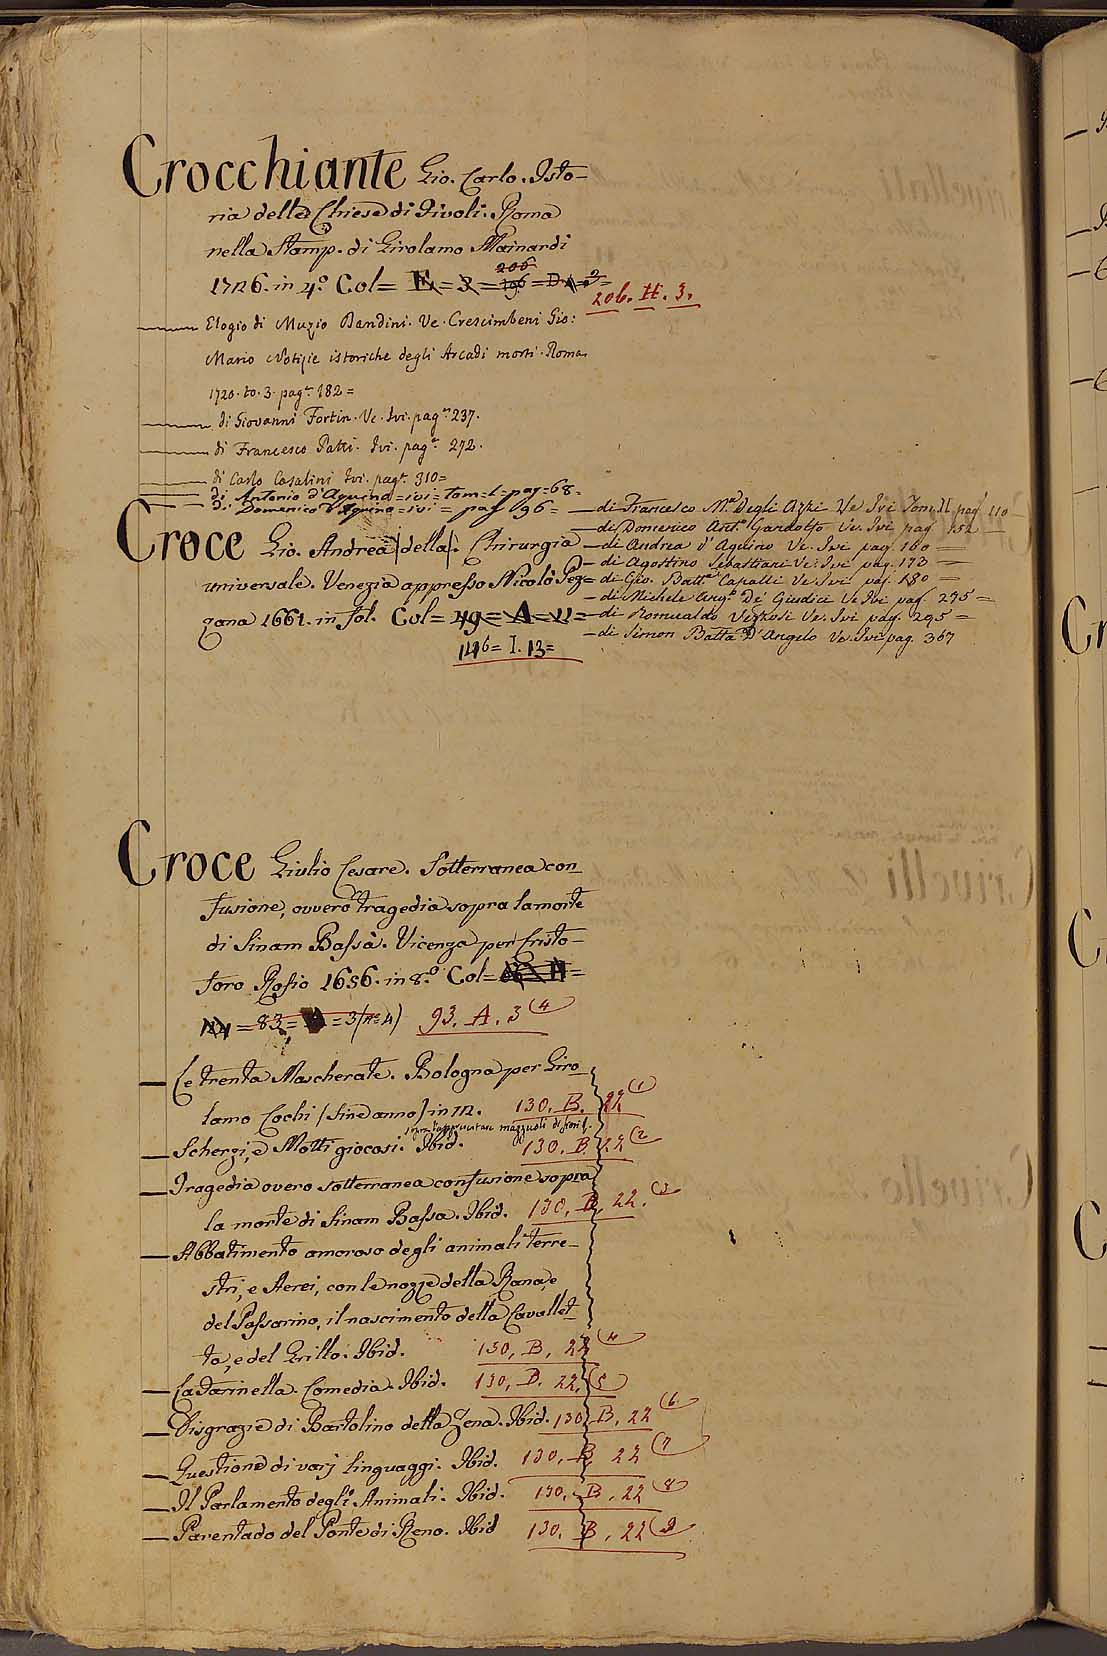 Crocchiante Gio. Carlo. Isto-
ria delle Chiese di Tivoli. Roma
nella Stamp. di Girolamo Mainardi
1726. in 4.º Col= E = 3 = 196 206 = D.
206. H. 3.
Elogio di Muzio Bandini. Ve. Crescimbeni Gio:
Mario Notizie istoriche degli Arcadi morti. Roma
1720. to. 3. pag. 182=
di Giovanni Fortin. Ve. Ivi. pag. 237.
di Francesco Patti. Ivi. pag. 272.
di Carlo Casalini Ivi. pag. 310=
di Antonio d'Aquino = ivi = tom=1= pag=68.
di Domenico d'Aquino = ivi = pag 196=
— di Francesco M.ª Degli Azzi Ve Ivi Tom. II. pag. 110
— di Domenico Ant.º Gandolfo Ve. Ivi pag. 152
— di Andrea d'Aquino Ve. Ivi pag. 160 —
— di Agostino Sebastiani Ve. Ivi pag. 173 —
— di Gio. Batt.ª Capalli Ve Ivi pag. 180 =
— di Michele Ang.º De' Giudici Ve Ivi pag. 235 =
— di Romualdo Ve. Ivi pag. 295 =
— di Simon Batta D'Angelo Ve. Ivi pag. 367
Croce Gio. Andrea (della). Chirurgia
universale. Venezia appresso Nicolò Pez=
zana 1661. in fol. Col= 49= A = 11=
146= I. 13=
Croce Giulio Cesare. Sotterranea con
fusione, ovvero tragedia sopra la morte
di Sinam Bassà. Vicenza per Cristo-
foro Rosio 1656. in 8.º Col=
= 83 = = 3 (nº 4) 93. A. 3 (4
— Le trenta Mascherate. Bologna per Giro
lamo Cochi (sine anno) in 12. 130. B. 22 (1
mazzuoli di fiori.
— Scherzi, e Motti giocosi. Ibid. 130. B. 22 (2
— Tragedia overo sotterranea confusione sopra
la morte di Sinam Bassa. Ibid. 130. B. 22. (3
— Abbatimento amoroso degli animali terre-
stri, e Aerei, con le nozze della Rana, e
del Passarino, il nascimento della Cavallet
ta, e del Grillo. Ibid. 130. B. 22 (4
— La Farinella. Comedia. Ibid. 130. B. 22. (5
— Disgrazie di Bartolino della Zena. Ibid. 130 B. 22 (6
— Questione di varj linguaggi. Ibid. 130. B. 22 (7
— Il Parlamento degli Animali. Ibid. 130. B. 22 (8
— Parentado del Ponte di Reno. Ibid 130. B. 22 (9